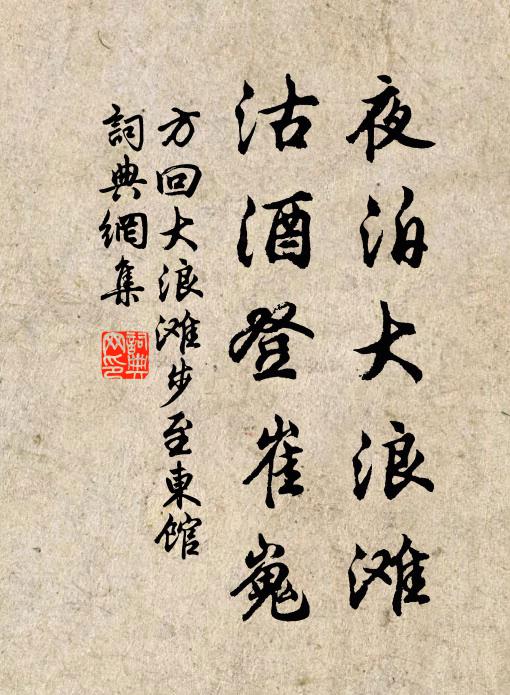 夜泊大浪滩
沽酒登崔嵬
方回大浪滩步至東館
詞典網集
詞典
网印